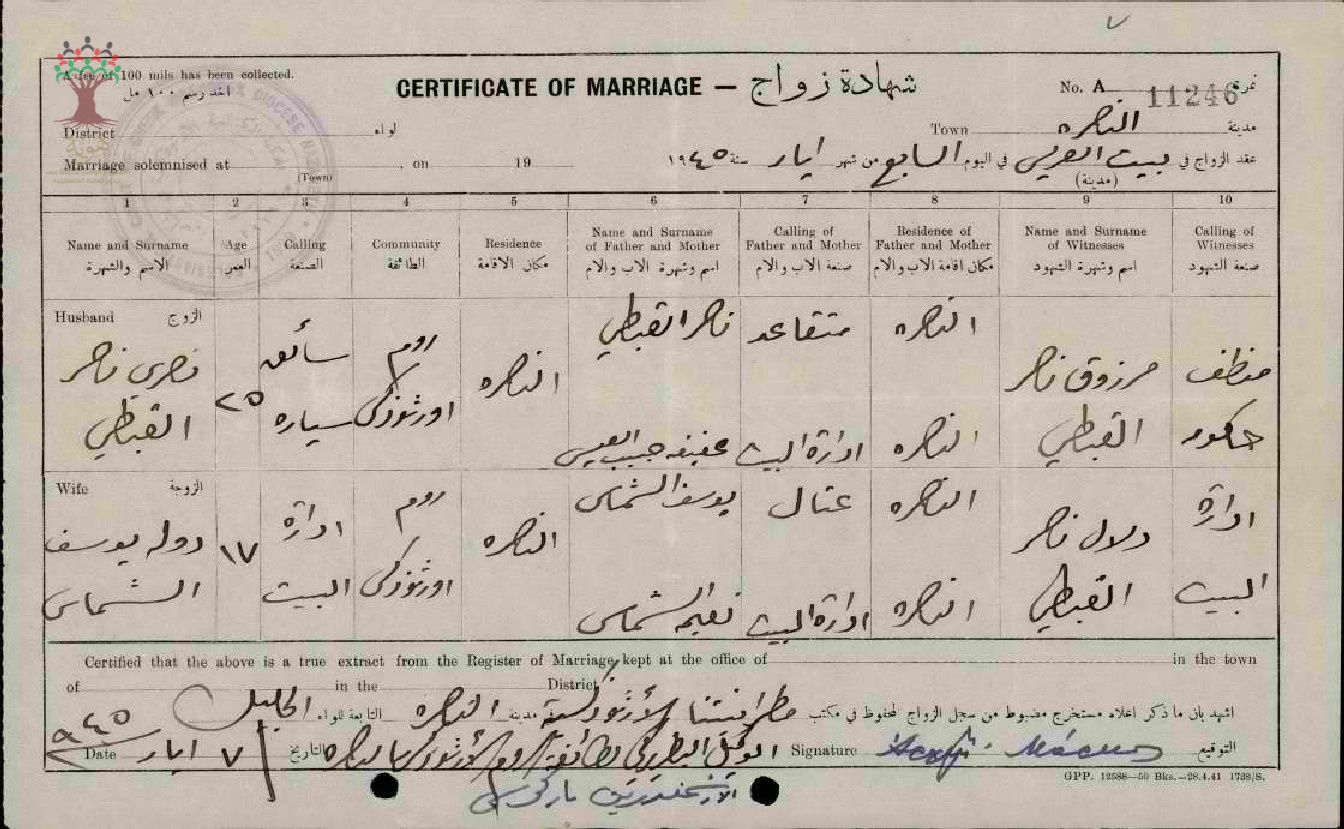 A fee of 100 mils has been collected.
اخذ رسم ١٠٠ مل
CERTIFICATE OF MARRIAGE — شهادة زواج
No. A 11246 نمرة
District لواء
Town الناصره مدينة
Marriage solemnised at , on 19
(Town)
عقد الزواج في بيت العريس في اليوم السابع من شهر ايار سنة ١٩٤٥
(مدينة)
1 2 3 4 5 6 7 8 9 10
Name and Surname
الاسم والشهرة
Age
العمر
Calling
الصنعة
Community
الطائفة
Residence
مكان الاقامة
Name and Surname
of Father and Mother
اسم وشهرة الاب والام
Calling of
Father and Mother
صنعة الاب والام
Residence of
Father and Mother
مكان اقامة الاب والام
Name and Surname
of Witnesses
اسم وشهرة الشهود
Calling of
Witnesses
صنعة الشهود
Husband الزوج
نصري ناصر
القبطي
٢٥
سائق
سياره
روم
اورثوذكس
الناصره
ناصر القبطي
عفيفه حبيب العيسى
متقاعد
ادارة البيت
الناصره
الناصره
مرزوق ناصر
القبطي
موظف
حكومه
Wife الزوجة
دوله يوسف
الشماس
١٧
ادارة
البيت
روم
اورثوذكس
الناصره
يوسف الشماس
نعيمه الشماس
عتال
ادارة البيت
الناصره
الناصره
دلال ناصر
القبطي
ادارة
البيت
Certified that the above is a true extract from the Register of Marriage kept at the office of in the town
of in the District
اشهد بان ما ذكر اعلاه مستخرج مضبوط من سجل الزواج المحفوظ في مكتب مطرانيتنا الأرثوذكسية مدينة الناصره التابعة للواء الجليل
Date ٧ ايار ٩٤٥ التاريخ
الوكيل البطريركي لطائفة الروم الأرثوذكس بالناصره
Signature التوقيع
GPP. 12588—50 Bks.—28.4.41 1738/S.